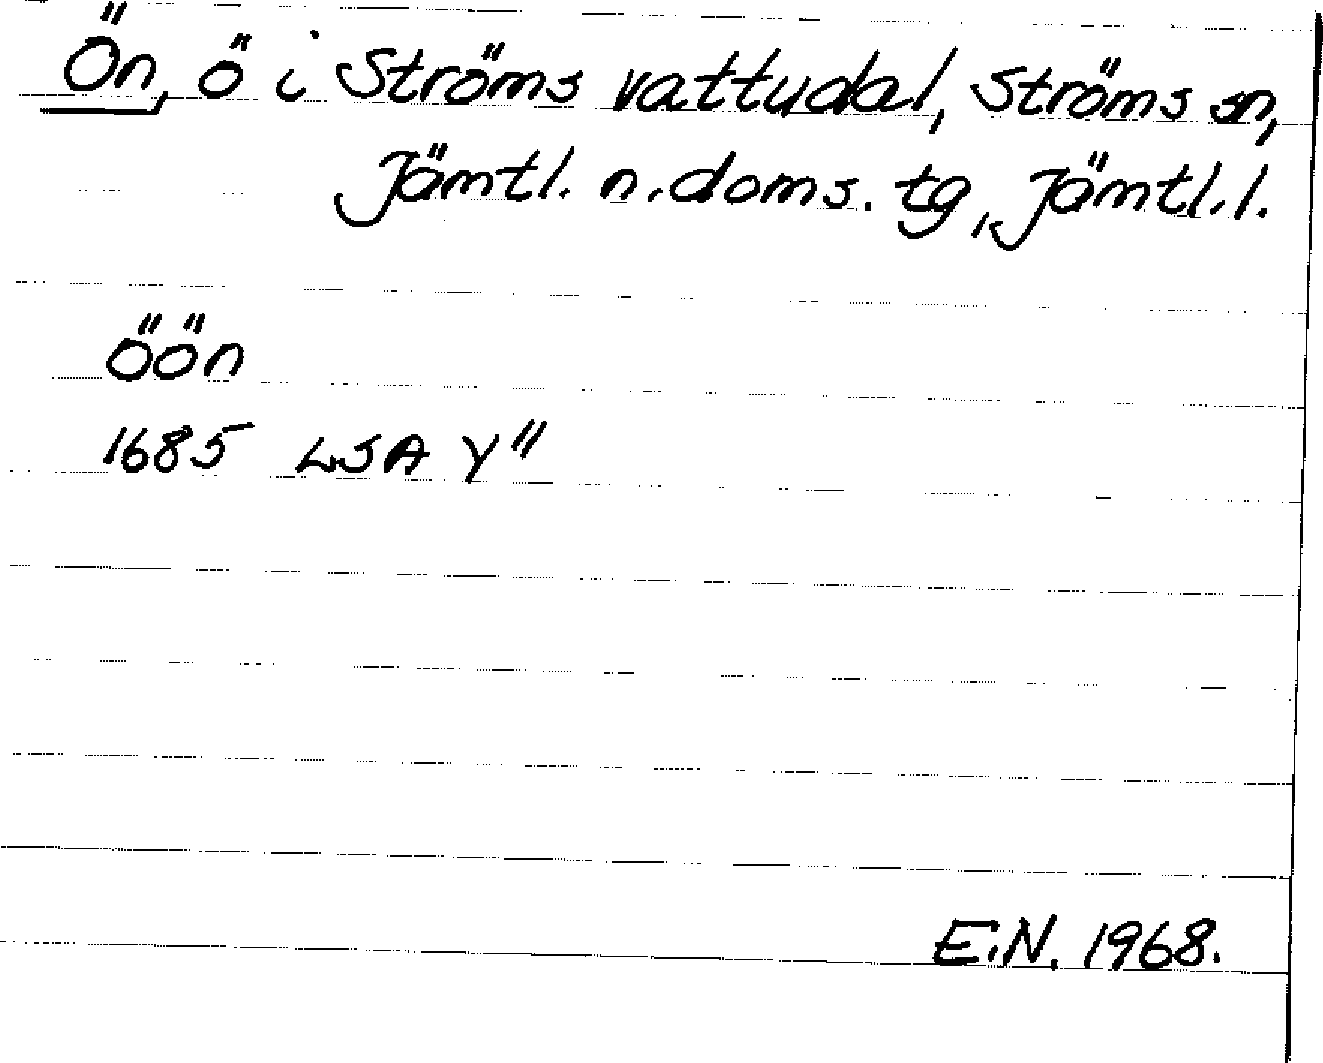 Ön, ö i Ströms vattudal, Ströms sn,
Jämtl. n. doms. tg, Jämtl. l.
öön
1685 LSA Y"
E.N. 1968.